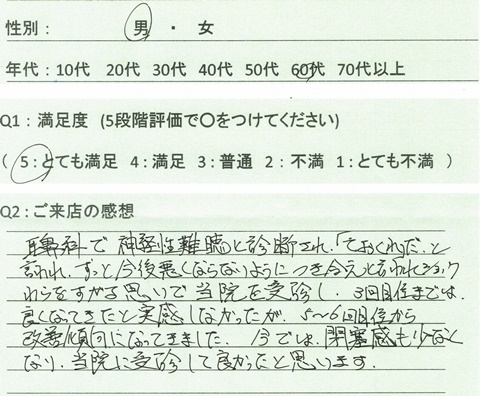 性別： 男 ・ 女
年代：10代 20代 30代 40代 50代 60代 70代以上
Q1：満足度 (5段階評価で〇をつけてください)
( 5：とても満足 4：満足 3：普通 2：不満 1：とても不満 )
Q2：ご来店の感想
耳鼻科で神経性難聴と診断され、「ておくれ」だ、と
言われ、ずっと今後悪くならないようにつき合えと言われたが、
わらをすがる思いで当院を受診し、3回目位までは、
良くなってきたと実感しなかったが、5～6回目位から
改善傾向になってきました。 今では、閉塞感も少なく
なり、当院に受診して良かったと思います。